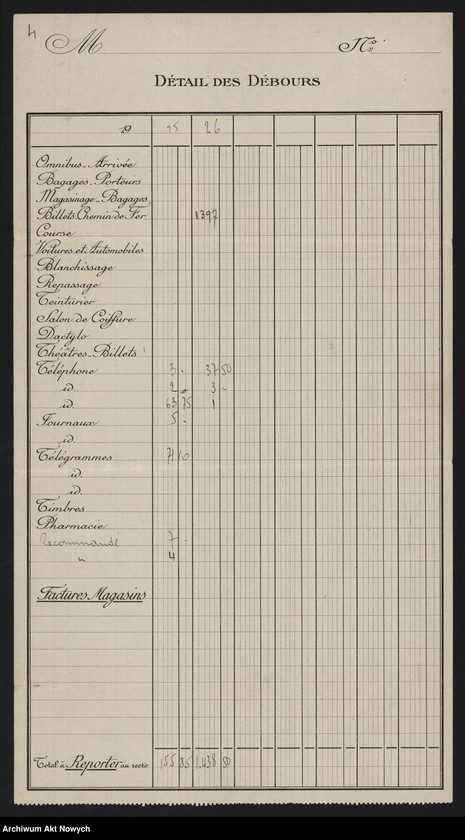 4
M Nº
DÉTAIL DES DÉBOURS
19 25 26
Omnibus-Arrivée
Bagages-Porteurs
Magasinage-Bagages
Billets Chemin de Fer 1397
Course
Voitures et Automobiles
Blanchissage
Repassage
Teinturier
Salon de Coiffure
Dactylo
Théâtres-Billets
Téléphone 3 - 37 50
id. 2 - 3 -
id. 63 75 1
Journaux 5 -
id.
Télégrammes 71 10
id.
id.
Timbres
Pharmacie
Recommandé 7 -
" 4
Factures Magasins
Total à Reporter au recto 155 85 1.438 50
Archiwum Akt Nowych